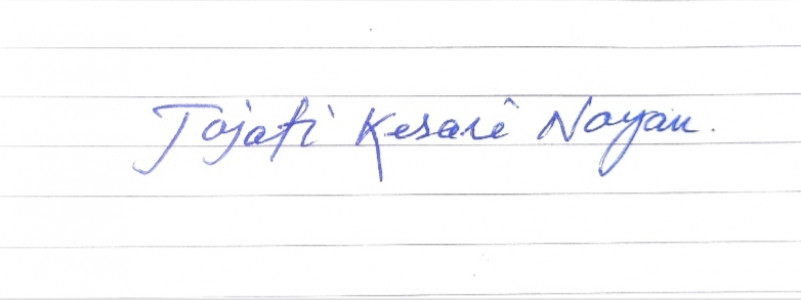 Jajati Kesari Nayan.